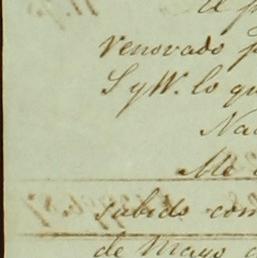 el p
renovado p
S y W. lo qu
Na
Me
subido com
de Mayo